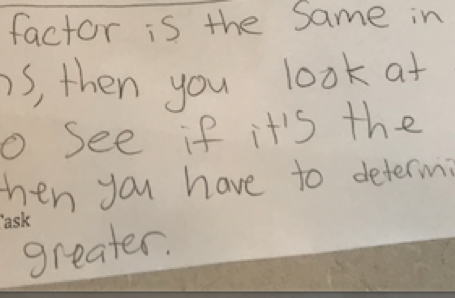 factor is the same in
s, then you look at
o see if it's the
hen you have to determi
ask
greater.